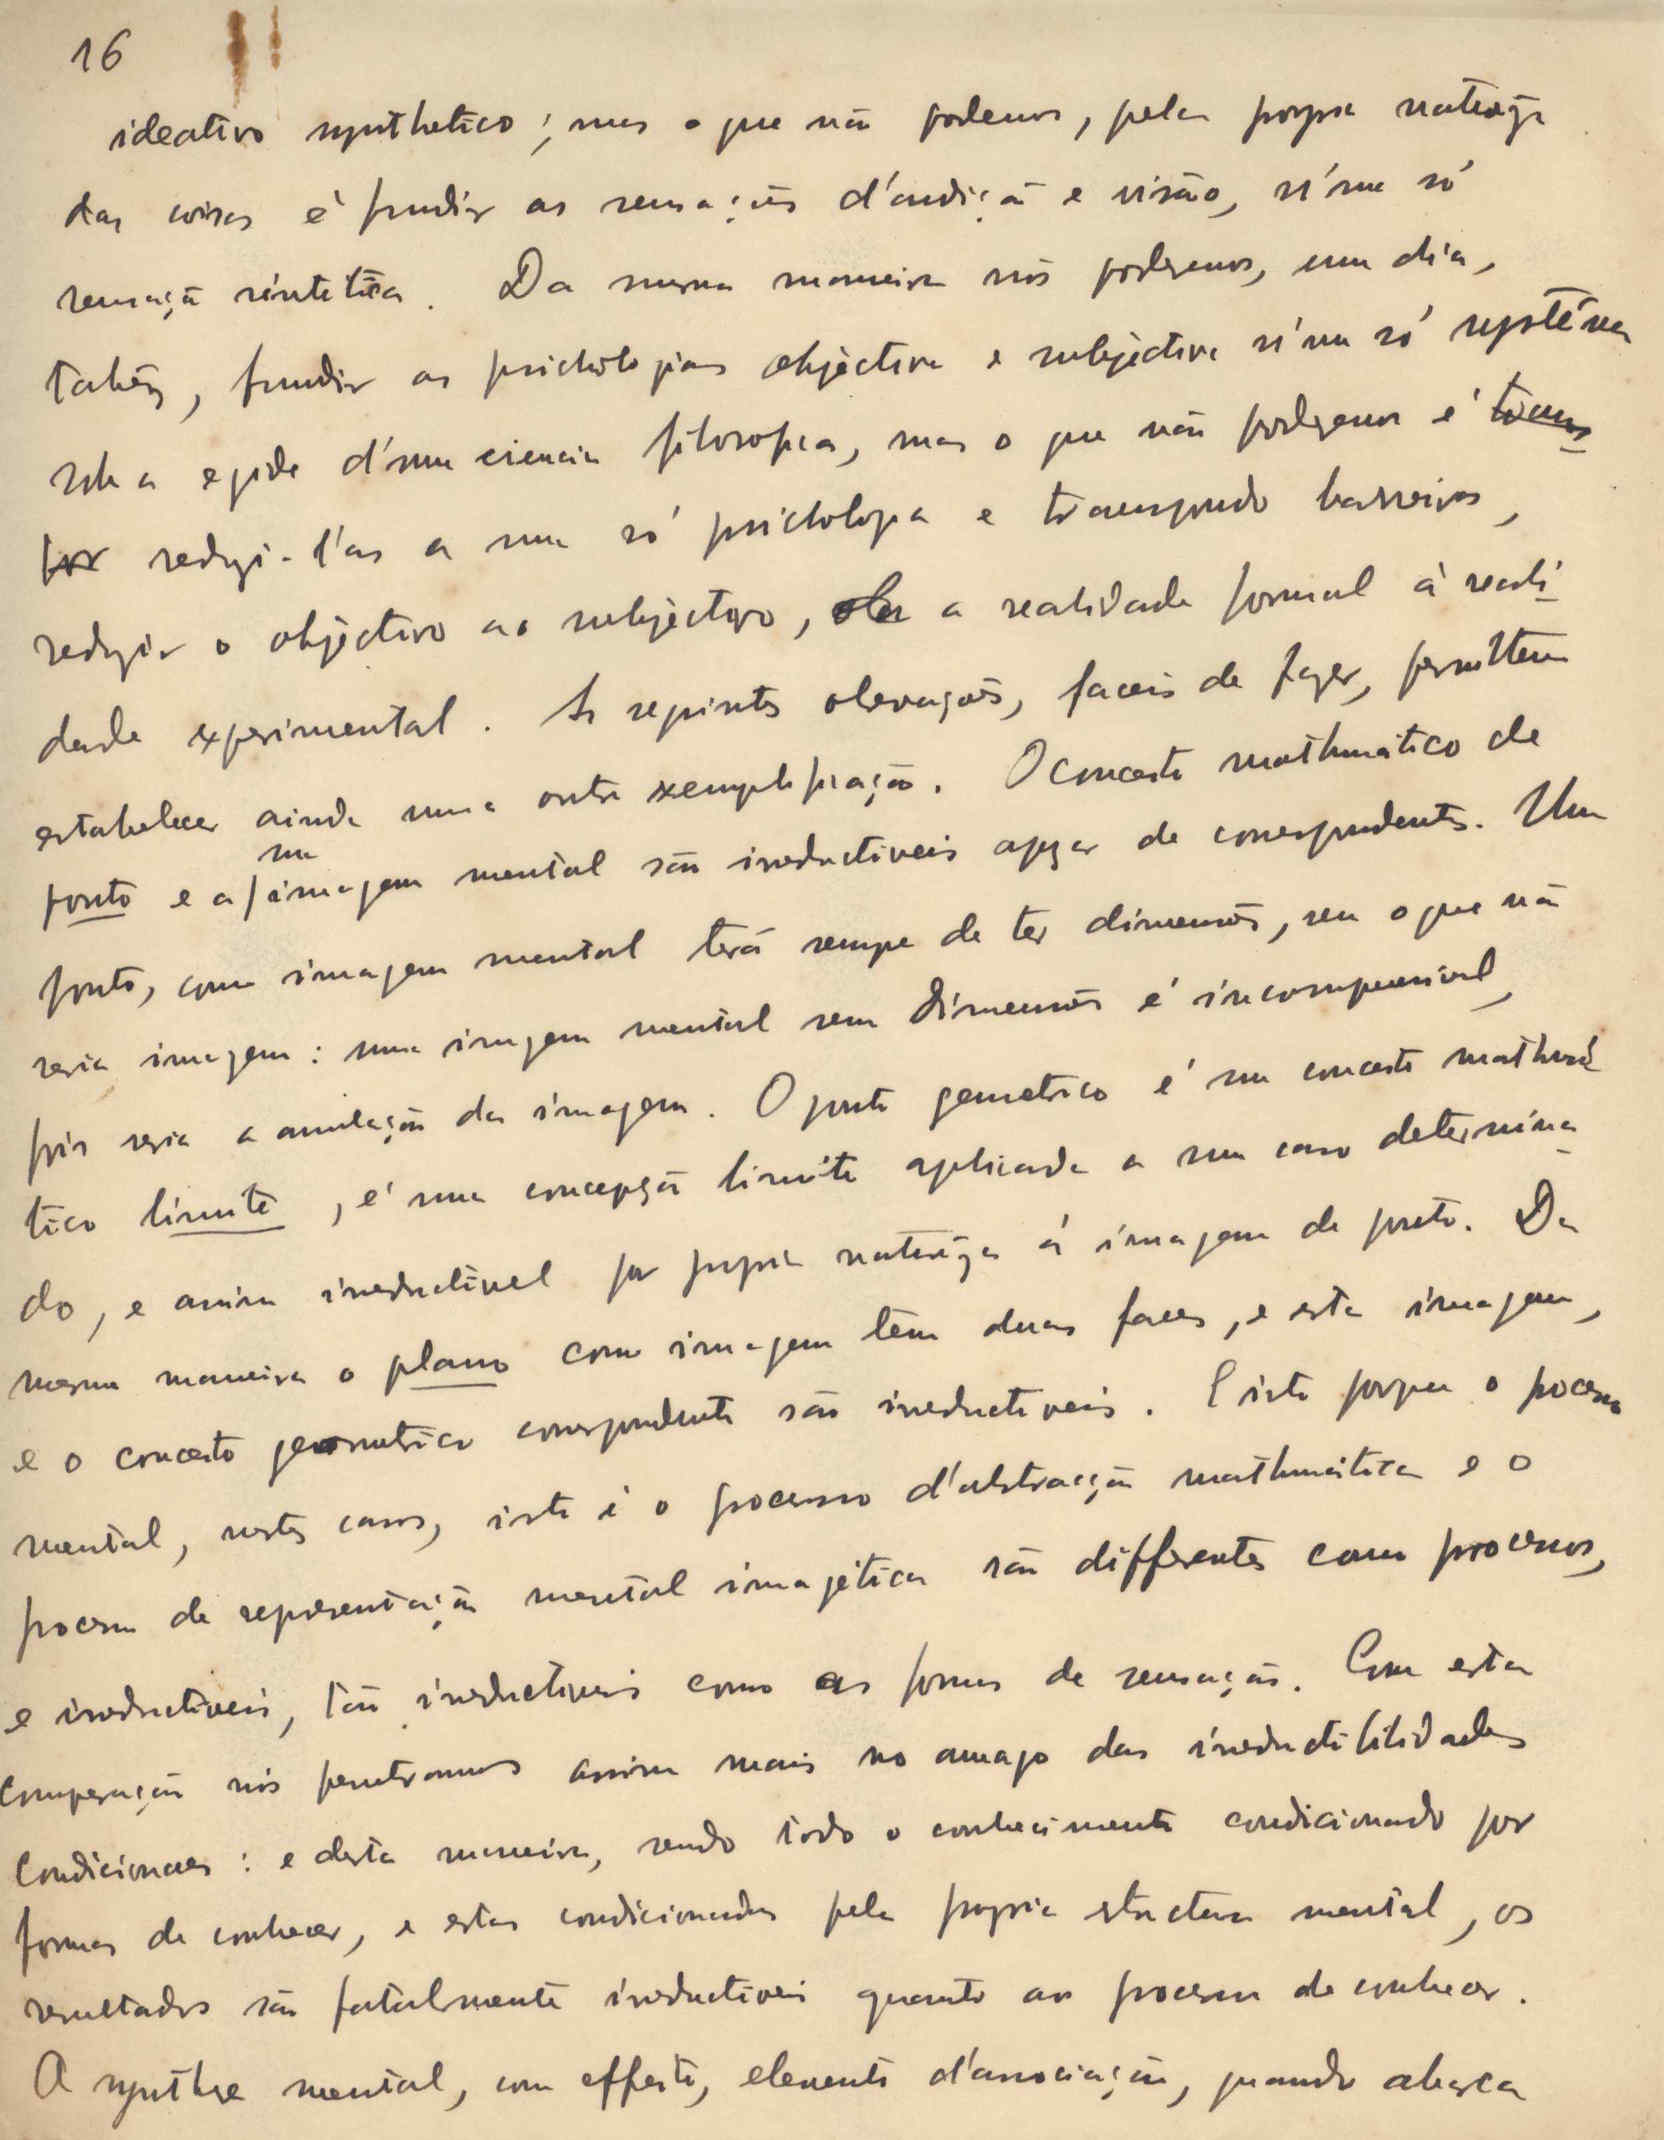 16
ideativo synthetico; mas o que não podemos, pela propria natureza
das coisas é fundir as sensações d'audição e visão, n'uma só
sensação sintetica. Da mesma maneira nós poderemos, um dia,
também, fundir as psichologias objectiva e subjectiva n'um só systéma
sob a egide d'uma ciencia filosofica, mas o que não poderemos é trans-
por reduzi-l'as a uma só psichologia e transpondo barreiras,
reduzir o objectivo ao subjectivo, a realidade formal á reali-
dade experimental. As seguintes observações, faceis de fazer, permittem
estabelecer ainda uma outra exemplificação. O conceito mathmático de
ponto e a sua imagem mental são ireductiveis apezar de correspondentes. Um
ponto, como imagem mental terá sempre de ter dimensões, sem o que não
seria imagem: uma imagem mental sem dimensões é incompreensivel,
pois seria a anulação da imagem. O ponto geometrico é um conceito mathmá-
tico limite, é uma concepção limite aplicada a um caso determina-
do, e assim ireductivel por propria natureza á imagem de ponto. Da
mesma maneira o plano como imagem tem duas faces, e esta imagem,
e o conceito geometrico correspondente são ireductiveis. E isto porque o processo
mental, nestes casos, isto é o processo d'abstracção mathmática e o
processo de representação mental imagética são differentes como processos,
e ireductiveis, tão ireductiveis como as formas de sensação. Com esta
comparação nós penetramos assim mais no amago das ireductibilidades
condicionaes: e desta maneira, sendo todo o conhecimento condicionado por
formas de conhecer, e estas condicionadas pela propria structura mental, os
resultados são fatalmente ireductiveis quanto ao processo de conhecer.
A synthese mental, com effeito, elemento d'associação, quando abarca